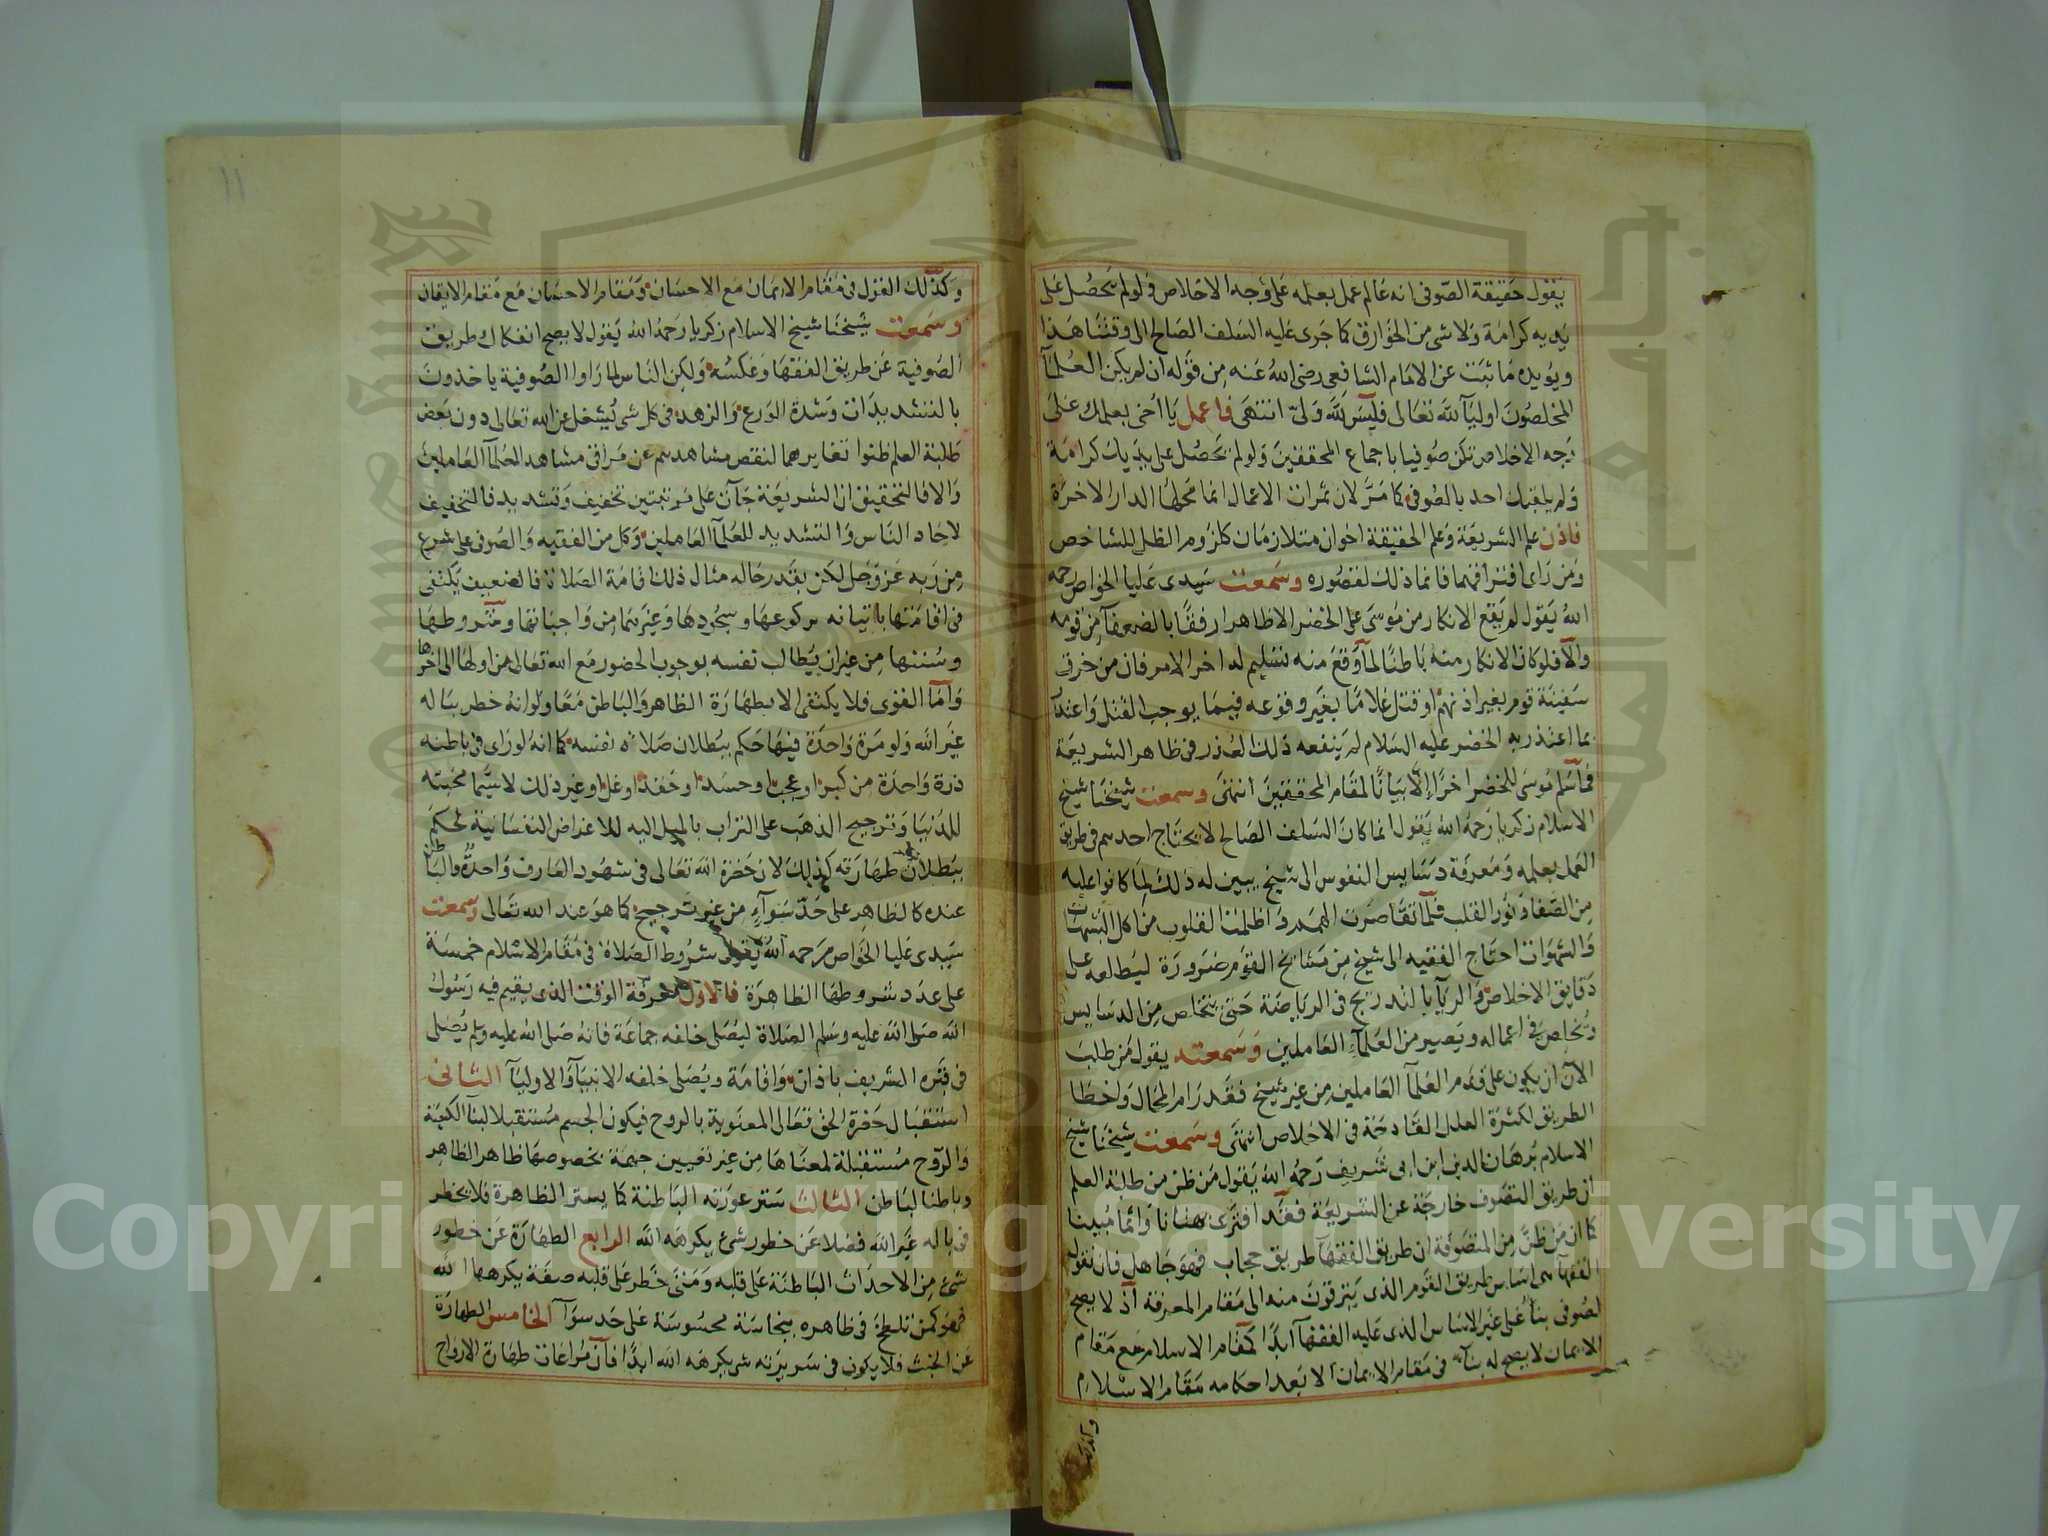 يقول حقيقة الصوفى انه عالم عمل بعلمه على وجه الاخلاص ولولم يحصل على
يديه كرامة ولا شى من الخوارق كما جرى عليه السلف الصالح الى وقتنا هذا
ويويده ما ثبت عن الامام الشافعى رضى الله عنه من قوله ان لم يكن العلمآ
المخلصون اوليآ الله تعالى فليس لله ولى انتهى فاعمل يا اخى بعلمك على
وجه الاخلاص تكن صوفيا باجماع المحققين ولولم يحصل على يديك كرامة
ولم يلقبك احد بالصوفى كما مر لان ثمرات الاعمال انما محلها الدار الاخرة
فاذن علم الشريعة وعلم الحقيقة اخوان متلازمان كلزوم الظل للشاخص
ومن راى افتراقهما فانما ذلك لقصوره وسمعت سيدى عليا الخواص رحمه
الله يقول لم يقع الانكار من موسى على الخضر الا ظاهرا رفقا بالضعفآ من قومه
والا فلو كان الانكار منه باطنا لمآ وقع منه تسليم له اخر الامر فان من خرق
سفينة قوم بغير اذنهم او قتل غلاما بغير وقوعه فيما يوجب القتل واعتذر
بما اعتذر به الخضر عليه السلام لم ينفعه ذلك العذر فى ظاهر الشريعة
فمآ سلم موسى للخضر اخرا الا بيانا لمقام المحققين انتهى وسمعت شيخنا شيخ
الاسلام زكريا رحمه الله يقول انما كان السلف الصالح لا يحتاج احدهم فى طريق
العمل بعلمه ومعرفة دسايس النفوس الى شيخ يبين له ذلك لما كانوا عليه
من الصفا ونور القلب فلما تقاصرت الهمم واظلمت القلوب من اكل الشبهات
والشهوات احتاج الفقيه الى شيخ من مشايخ القوم ضرورة ليطالعه على
دقايق الاخلاص والريآ بالتدريج فى الرياضة حتى يتخلص من الدسايس
ويخلص فى اعماله ويصير من العلمآء العاملين وسمعته يقول من طلب
الآن ان يكون على قدم العلمآ العاملين من غير شيخ فقد رام المحال واخطا
الطريق لكثرة العلل القادحة فى الاخلاص انتهى وسمعت شيخنا شيخ
الاسلام برهان الدين ابن ابى شريف رحمه الله يقول من ظن من طلبة العلم
ان طريق التصوف خارجة عن الشريعة فقد افترى بهتانا واثما مبينا
كما ان من ظن من المتصوفة ان طريق الفقهآ طريق حجاب فهو جاهل فان نقول
الفقهآ هى اساس طريق القوم الذى يترقون منه الى مقام المعرفة اذ لا يصح
لصوفى بنآ على غير الاساس الذى عليه الفقهآ ابدا كمقام الاسلام مع مقام
الايمان لا يصح له بنآء فى مقام الايمان الا بعد احكامه مقام الاسلام
وكذلك
١١
وكذلك القول فى مقام الايمان مع الاحسان ومقام الاحسان مع مقام الايقان
وسمعت شيخنا شيخ الاسلام زكريا رحمه الله يقول لا يصح انفكاك طريق
الصوفية عن طريق الفقها وعكسه ولكن الناس لما راوا الصوفية ياخذون
بالتشديدات وشدة الورع والزهد فى كل شى يشغل عن الله تعالى دون بعض
طلبة العلم ظنوا تغايرهما لنقص مشاهدهم عن مراقى مشاهد العلمآ العاملين
والا فالتحقيق ان الشريعة جآت على مرتبتين تخفيف وتشديد فالتخفيف
لاحاد الناس والتشديد للعلمآ العاملين وكل من الفقيه والصوفى على شرع
من ربه عز وجل لكن بقدر حاله مثال ذلك اقامة الصلاة فالضعيف يكتفى
فى اقامتها باتيانه بركوعها وسجودها وغيرهما من واجباتها وشروطها
وسننها من غير ان يطالب نفسه بوجوب الحضور مع الله تعالى من اولها الى اخرها
وامآ القوى فلا يكتفى الا بطهارة الظاهر والباطن معا ولو انه خطر بباله
غير الله ولو مرة واحدة فيها حكم ببطلان صلاته نفسه كما انه لو راى فى باطنه
ذرة واحدة من كبر او عجب او حسد او حقد او غل او غير ذلك لاسيما محبته
للدنيا وترجيح الذهب على التراب بالميل اليه للاغراض النفسانية لحكم
ببطلان طهارته كذلك لان حضرة الله تعالى فى شهود العارف واحدة فالباطن
عنده كالظاهر على حد سوآء من غير ترجيح كما هو عند الله تعالى وسمعت
سيدى عليا الخواص رحمه الله يقول شروط الصلاة فى مقام الاسلام خمسة
على عدد شروطها الظاهرة فالاول معرفة الوقت الذى يقيم فيه رسول
الله صلى الله عليه وسلم الصلاة ليصلى خلفه جماعة فانه صلى الله عليه وسلم يصلى
فى قبره الشريف باذان واقامة ويصلى خلفه الانبيآ والاوليآ الثانى
استقبال حضرة الحق تعالى المعنوية بالروح فيكون الجسم مستقبلا لبنآ الكعبة
والروح مستقبلة لمعناها من غير تعيين جهة بخصوصها ظاهر الظاهر
وباطنا لباطن الثالث ستر عورته الباطنة كما يستر الظاهرة فلا يخطر
فى باله غير الله فضلا عن خطور شئ يكرهه الله الرابع الطهارة عن خطور
شئ من الاحداث الباطنة على قلبه ومتى خطر على قلبه صفة يكرهها الله
فهو كمن تلطخ فى ظاهره بنجاسة محسوسة على حد سوآ الخامس الطهارة
عن الخبث فلا يكون فى سريرته شى يكرهه الله ابدا فآن مراعات طهارة الارواح
Copyright © King Saud University